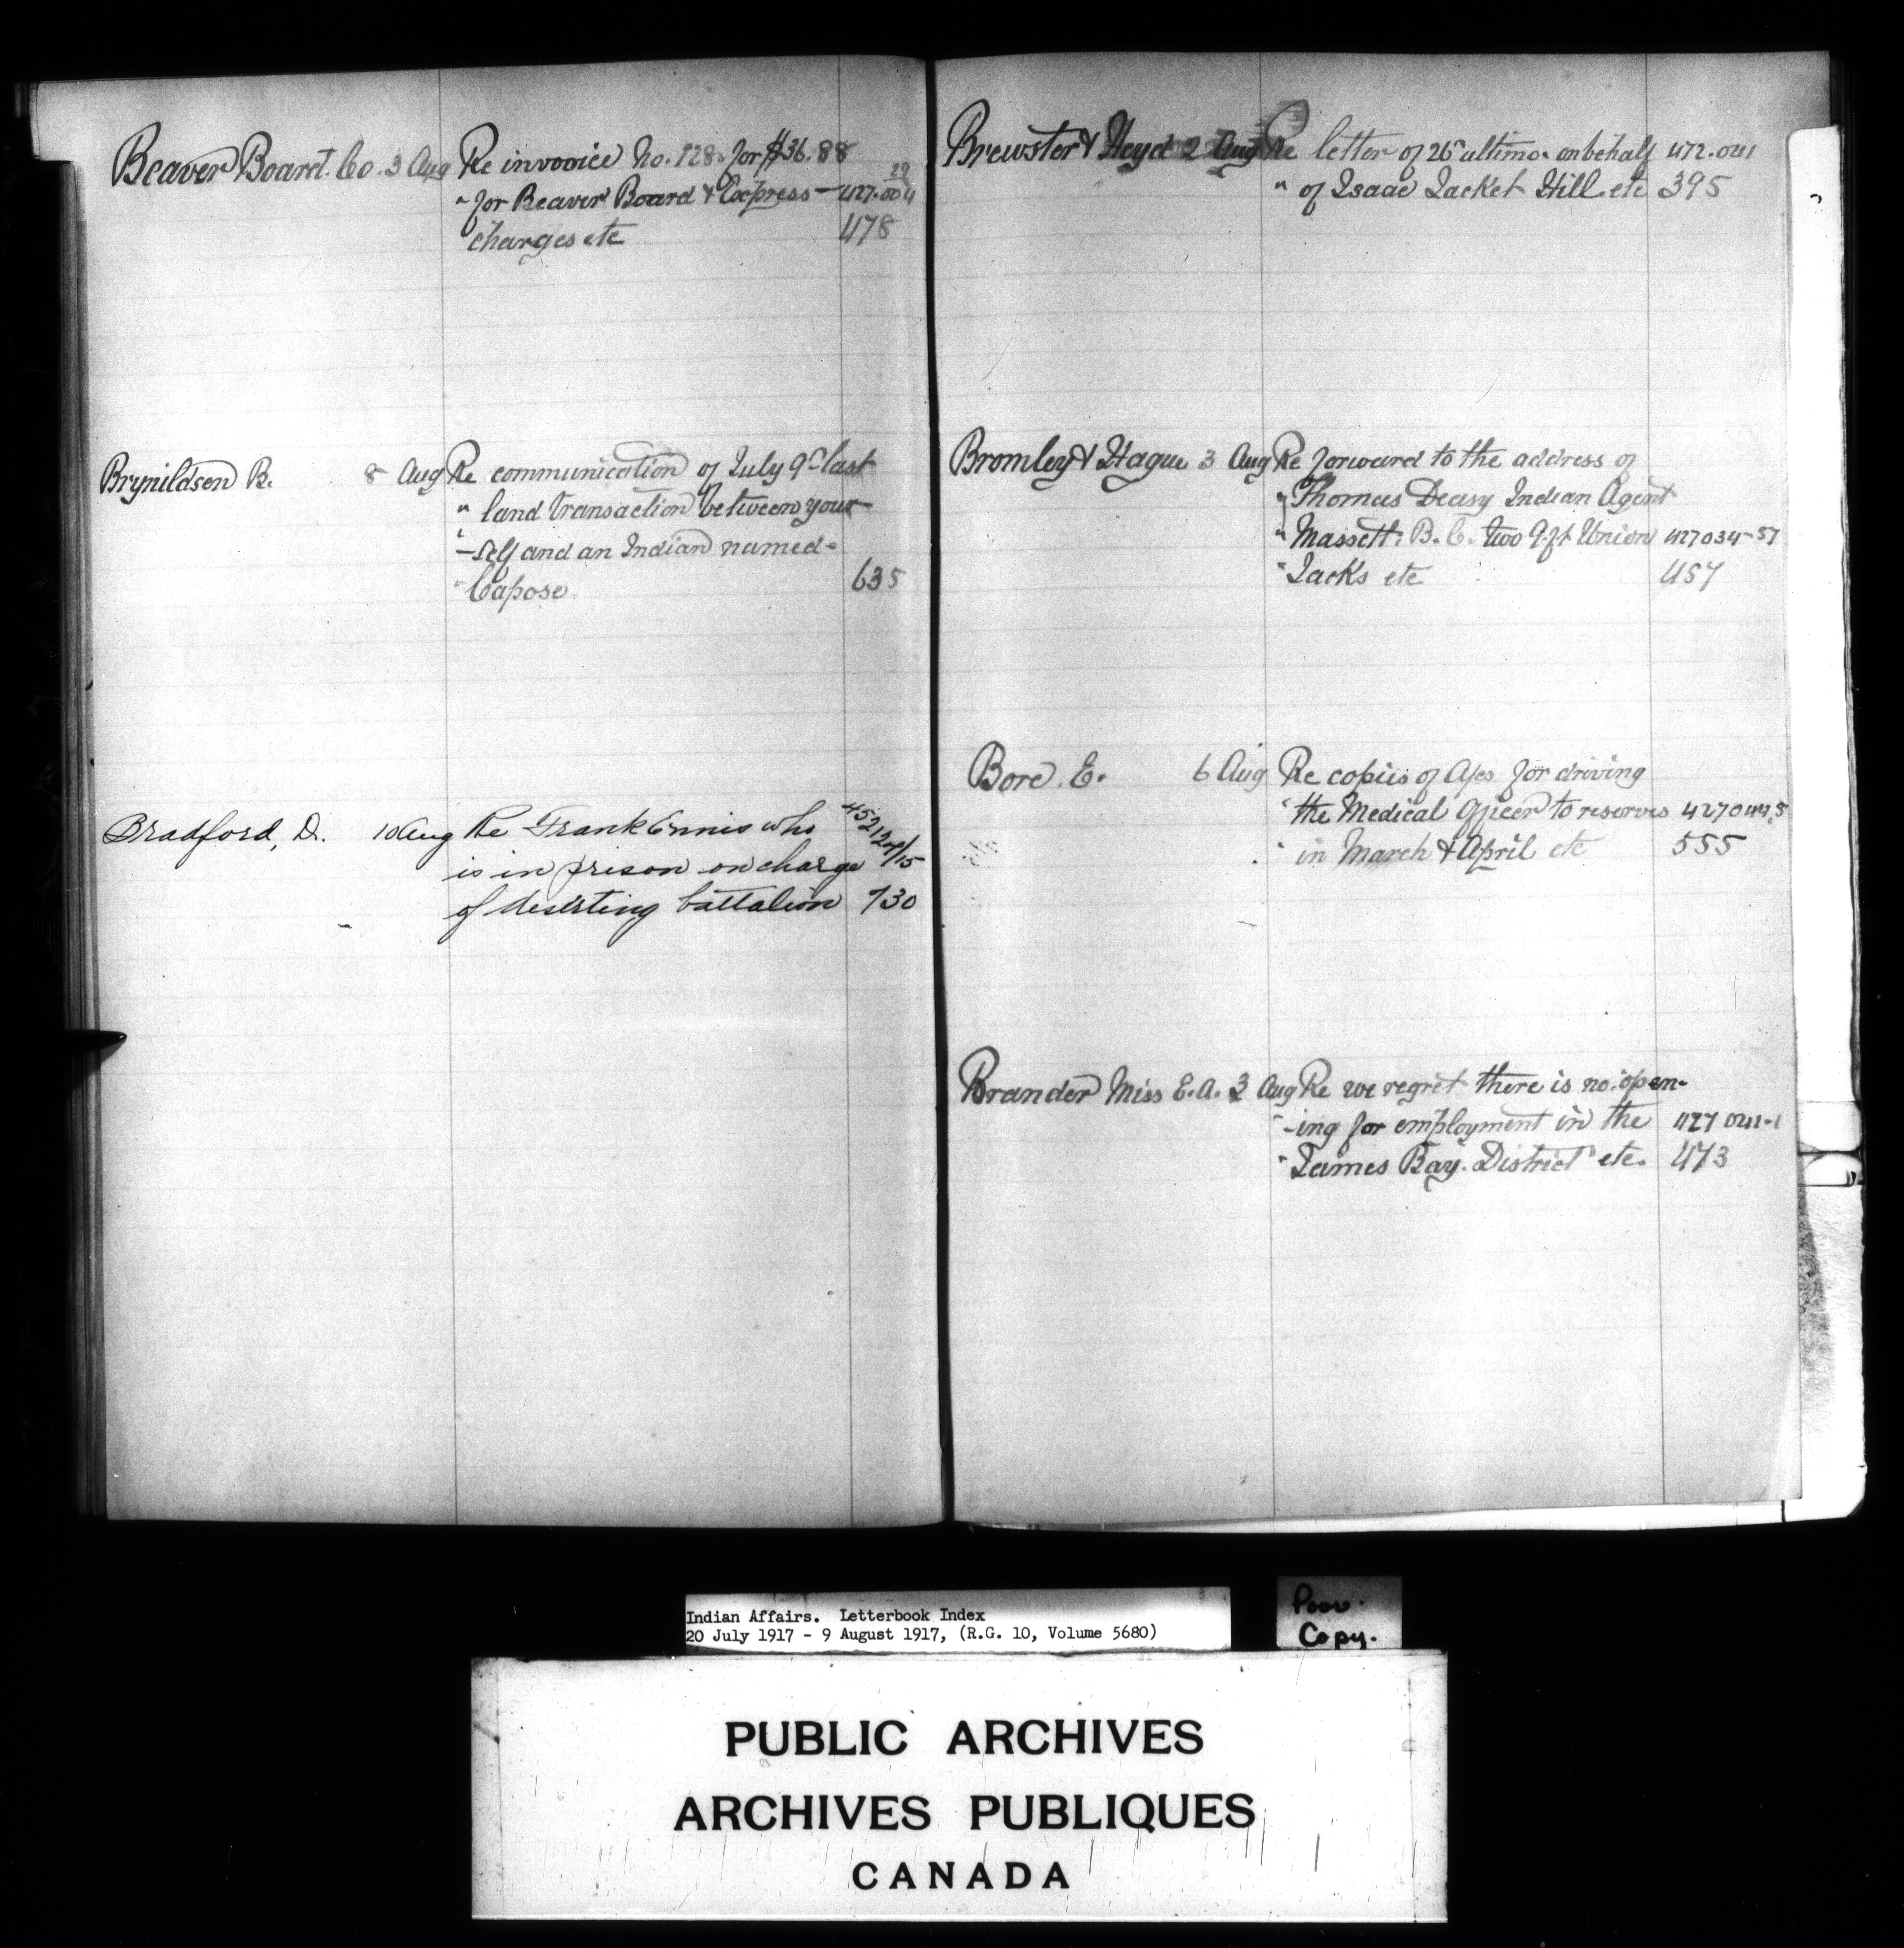 Beaver Board. Co. 3 Aug Re invooice No. 128. for $36.88
" for Beaver Board & Express - 427.004 29
charges etc 478
Brynildsen B. 8 Aug Re communication of July 9th last
" land transaction between your-
" -self and an Indian named-
" Capose 635
Bradford, D. 10 Aug Re Frank Ennis who 452124/15
is in prison on charge
of deserting battalion 730
Brewster & Heyd 2 Aug Re letter of 26th ultimo. on behalf 472.041
" of Isaac Jacket Hill etc 395
Bromley & Hague 3 Aug Re forward to the address of
" Thomas Deasy Indian Agent
" Massett. B.C. two 9.ft Union 427034-57
" Jacks etc 457
Bore. E. 6 Aug Re copies of a/cs for driving
" the Medical Officer to reserves 427044.5
" in March & April etc 555
Brander Miss E.A. 3 Aug Re we regret there is no open-
" -ing for employment in the 427041-1
" James Bay. District etc. 473
Indian Affairs. Letterbook Index
20 July 1917 - 9 August 1917, (R.G. 10, Volume 5680)
Poor.
Copy.
PUBLIC ARCHIVES
ARCHIVES PUBLIQUES
CANADA